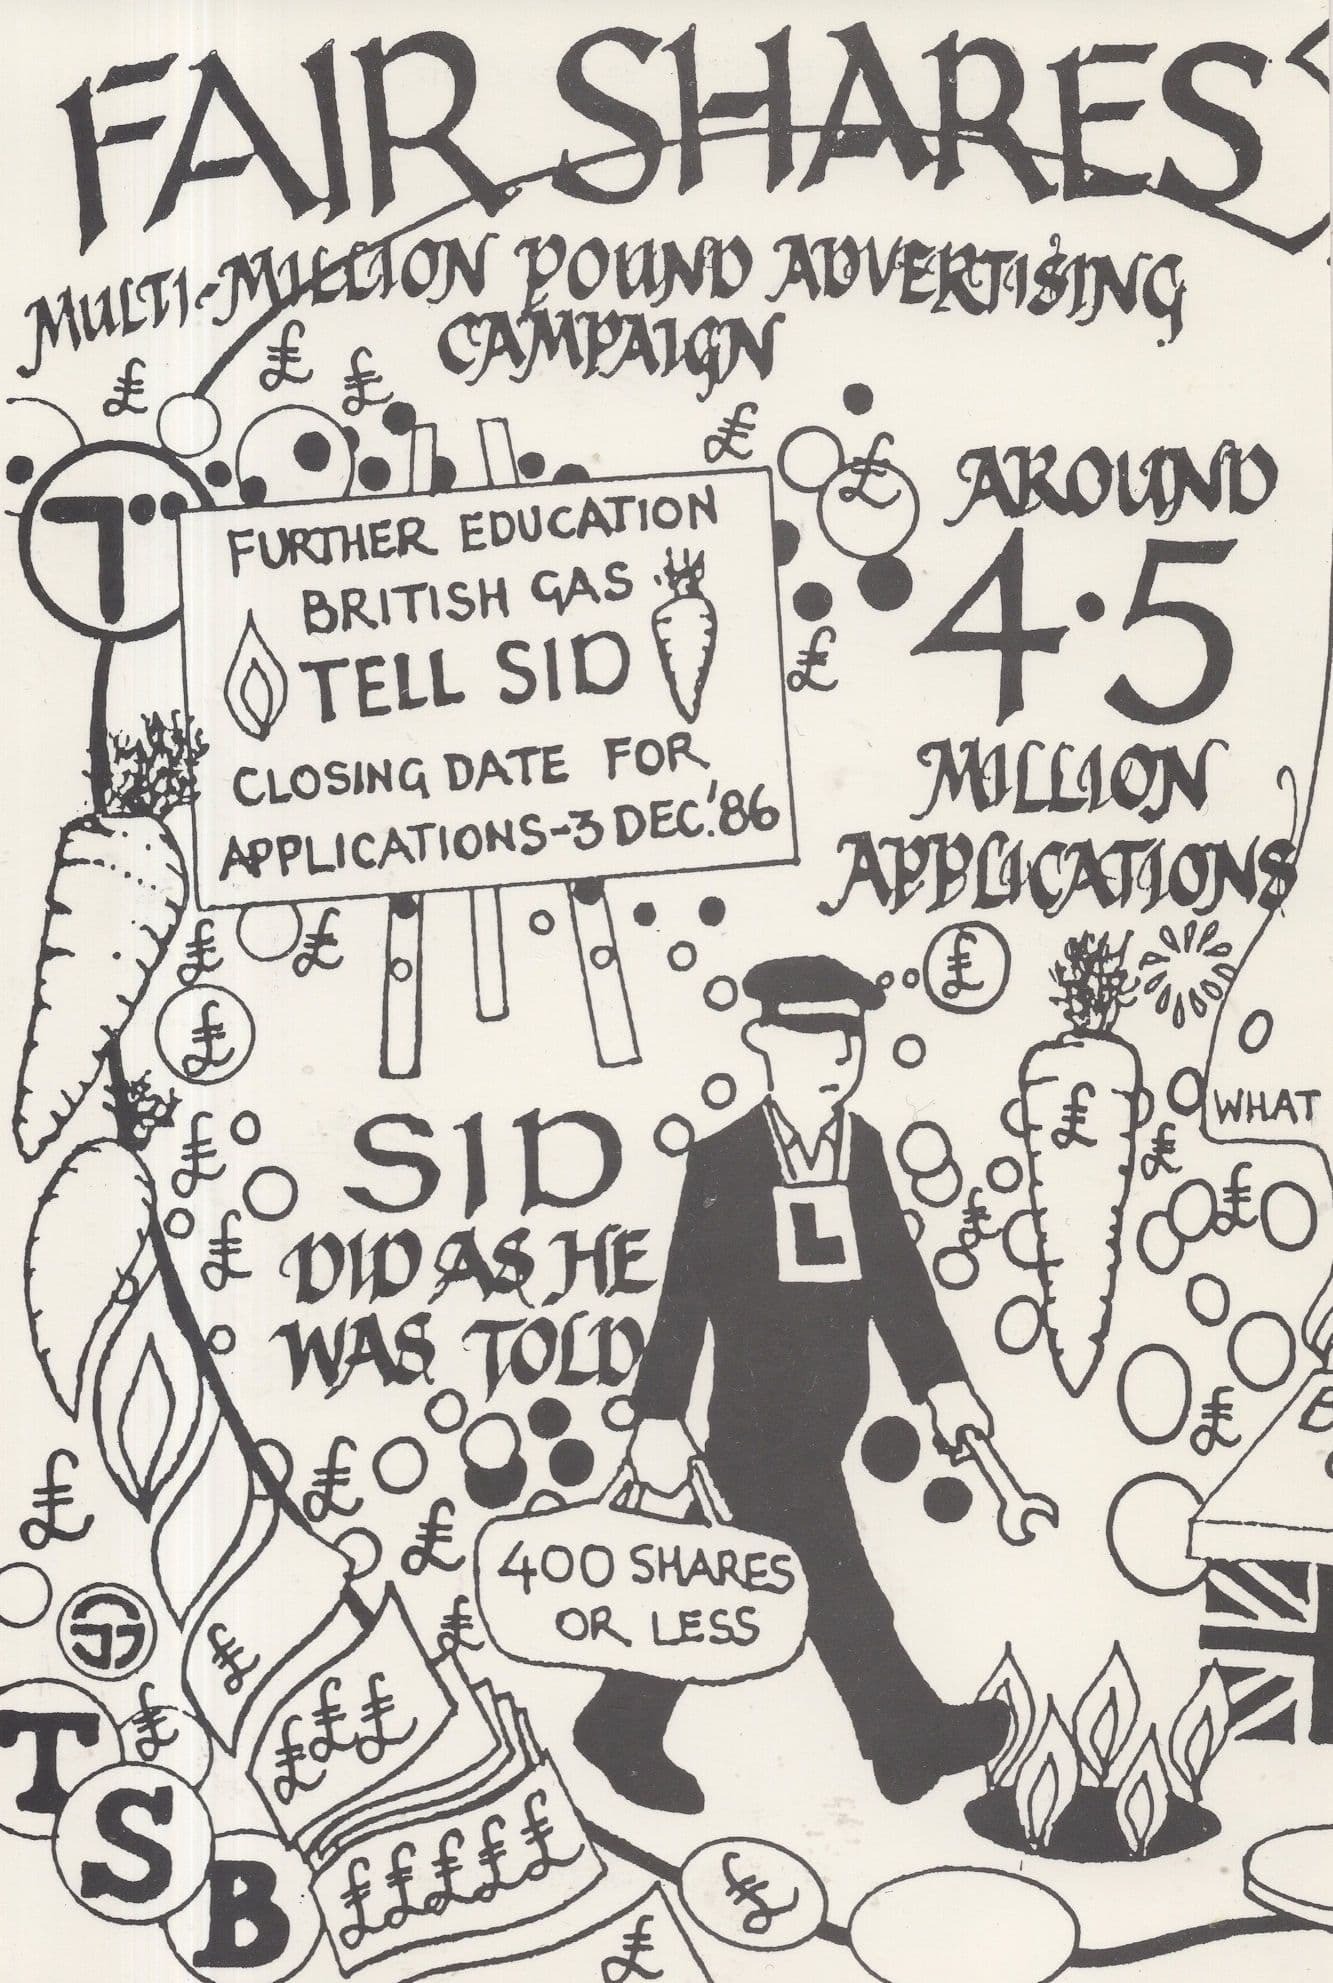 FAIR SHARES
MULTI-MILLION POUND ADVERTISING
CAMPAIGN
£
£
£
£
£
T
FURTHER EDUCATION
BRITISH GAS
TELL SID
CLOSING DATE FOR
APPLICATIONS-3 DEC.'86
AROUND
4·5
MILLION
APPLICATIONS
£
£
£
£
£
£
WHAT
SID
DID AS HE
WAS TOLD
L
£
£
£
£
£
£
£
£
£
400 SHARES
OR LESS
£
£
£
£££
£££££
T
S
B
£
£